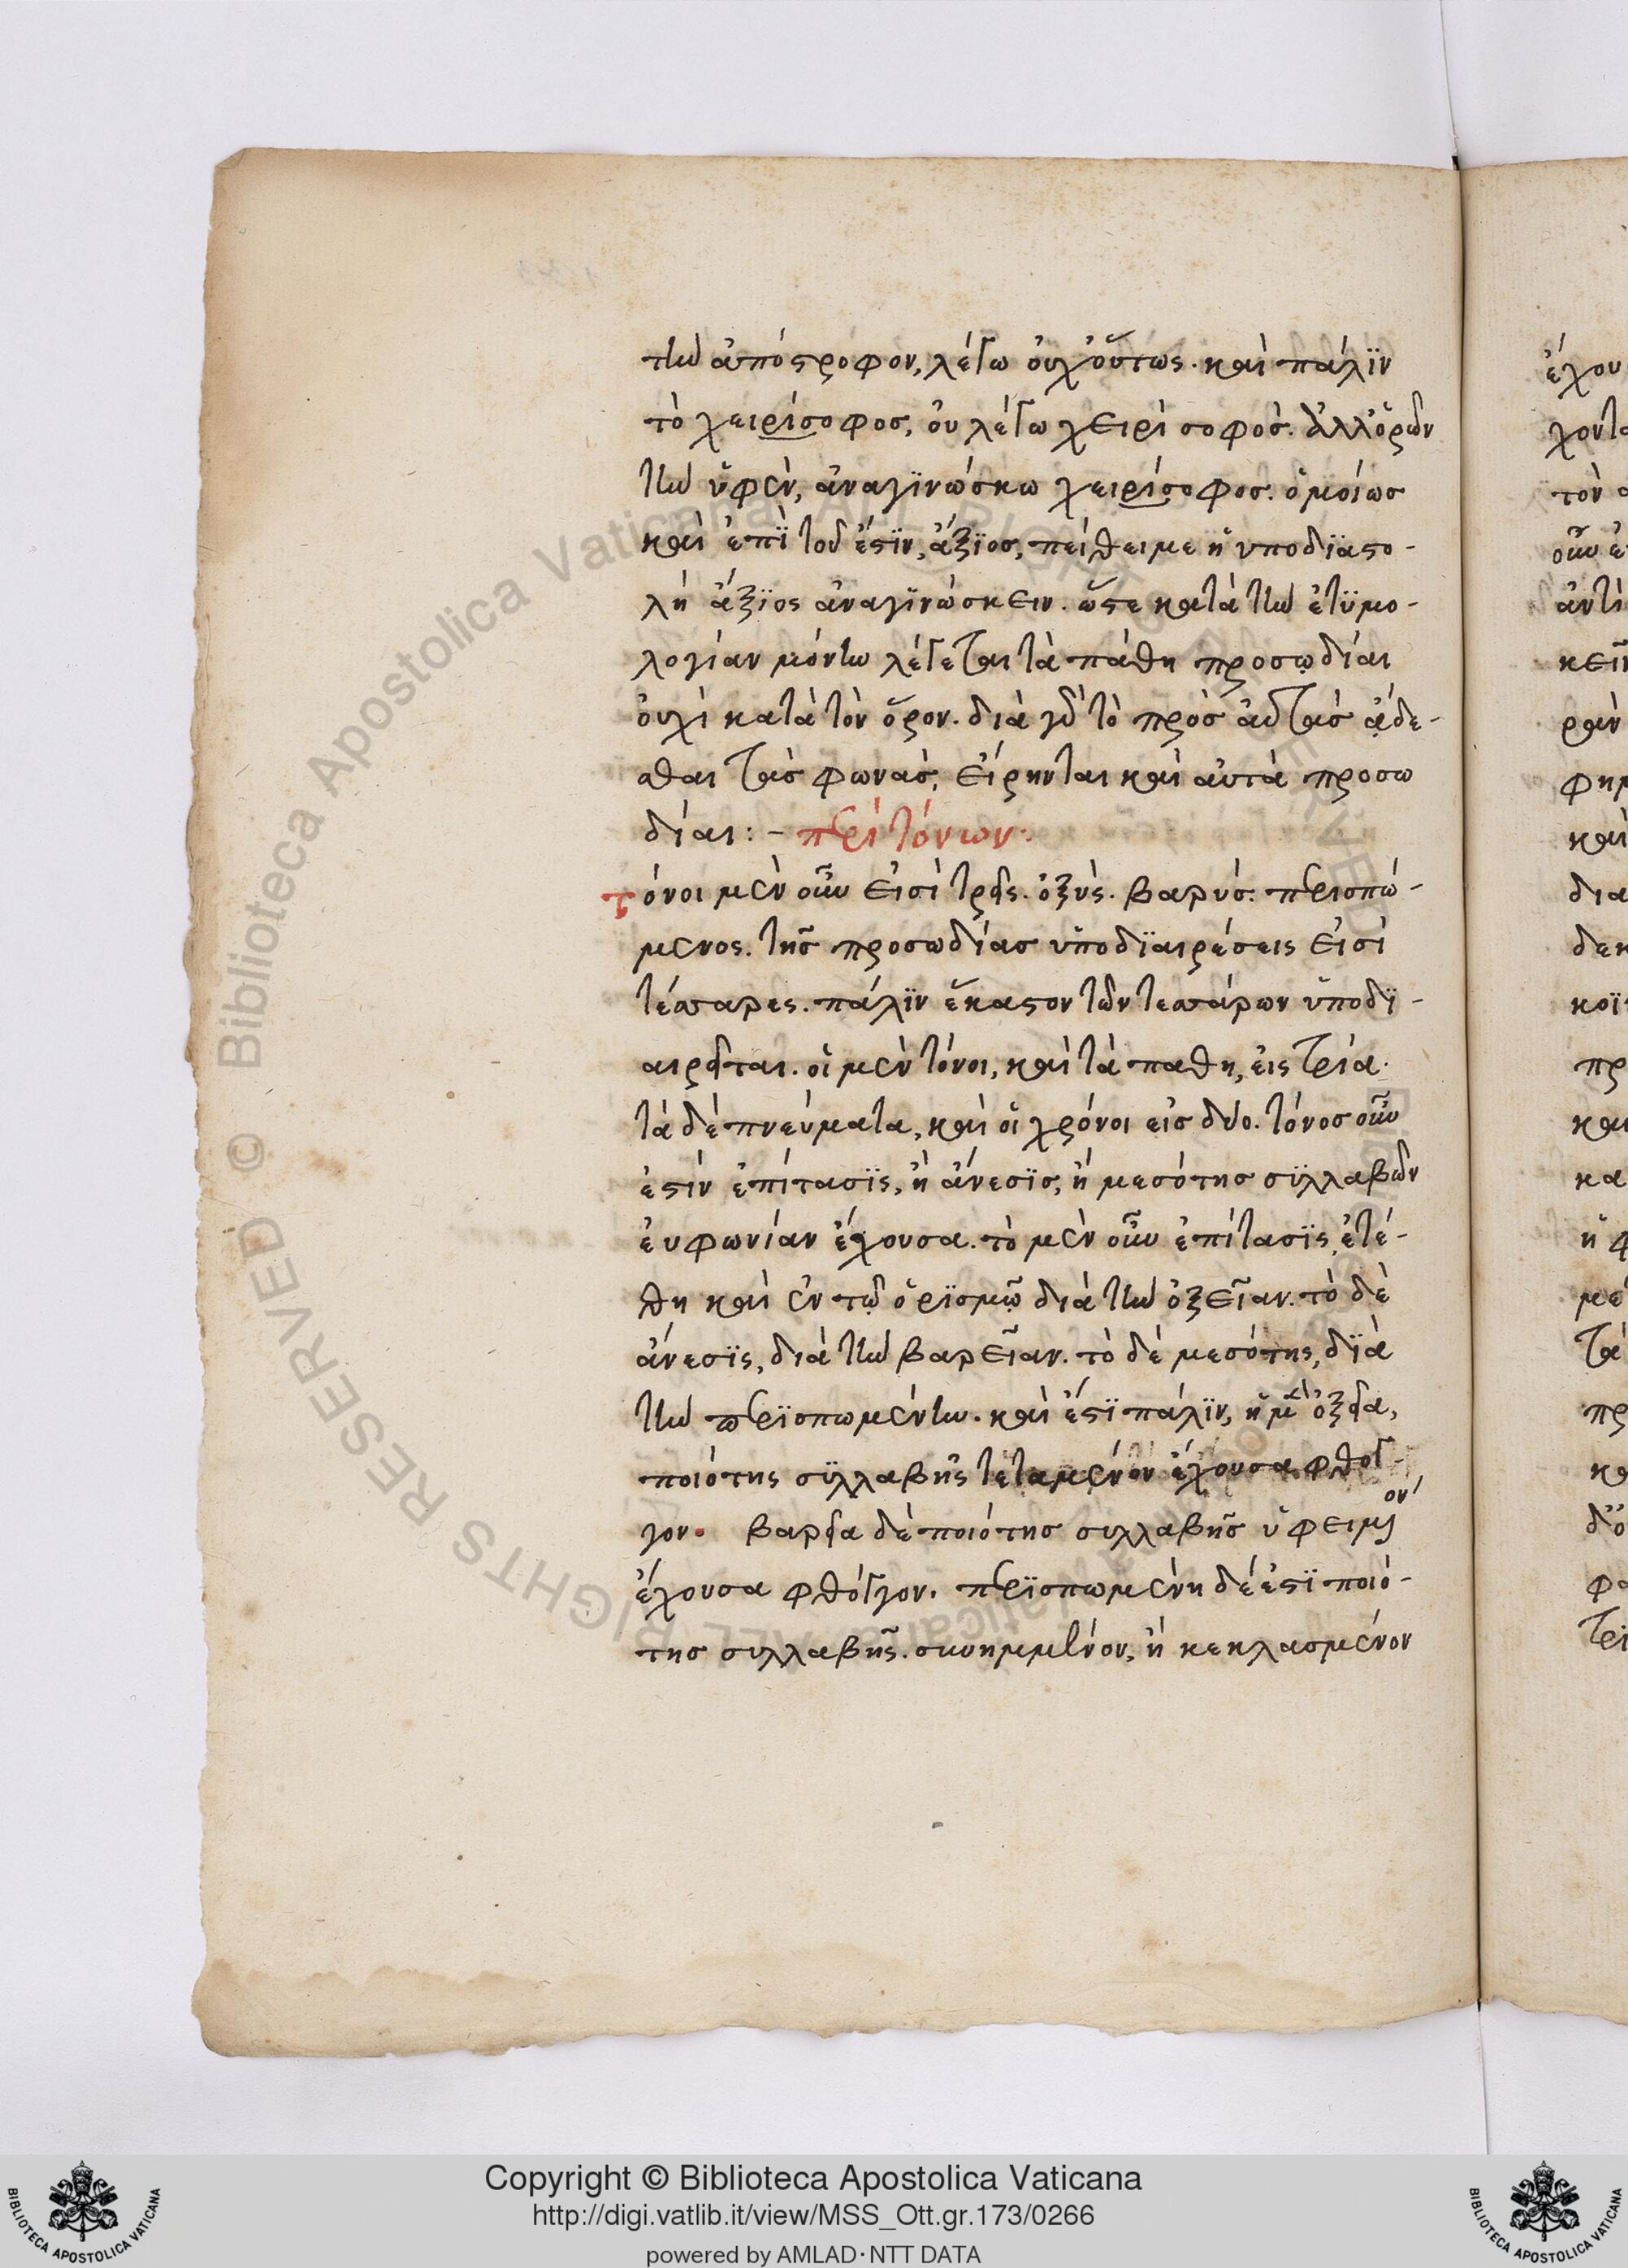 τὴν ἀπόστροφον, λέγω οὐχ οὕτως. καὶ πάλϊν
τὸ χειρίσοφοσ, οὐ λέγω χειρὶ σοφόσ. ἀλλ' ὁρῶν
τὴν ὑφὲν, ἀναγϊνώσκω χειρίσοφοσ. ὁμοίωσ
καὶ ἐπῒ τοῦ ἐστϊν, ἄξϊοσ, πείθει με ἡ ὑποδϊαστο-
λὴ ἄξϊος ἀναγϊνώσκειν. ὥστε κατὰ τὴν ἐτϋμο-
λογίαν μόνην λέγεται τὰ πάθη προσῳδίαι
οὐχὶ κατὰ τὸν ὅρον. διὰ γὰρ τὸ πρὸσ αὐτὰσ ᾄδε-
σθαι τὰσ φωνὰσ, εἴρηνται καὶ αὐτὰ προσω
δίαι: – περὶ τόνων.
τόνοι μὲν οὖν εἰσὶ τρεῖς. ὀξύς. βαρύσ. περισπώ-
μενος. τῆσ προσωδίασ ὑποδϊαιρέσεις εἰσὶ
τέσσαρες. πάλϊν ἕκαστον τῶν τεσσάρων ὑποδϊ-
αιρεῖται. οἱ μὲν τόνοι, καὶ τὰ παθη, εἰς τρία.
τὰ δὲ πνεύματα, καὶ οἱ χρόνοι εἰσ δύο. τόνοσ οὖν
ἐστὶν ἐπίτασϊς, ἢ ἄνεσϊσ, ἢ μεσότησ σϋλλαβῶν
ἐυφωνίαν ἔχουσα. τὸ μὲν οὖν ἐπίτασϊς, ἐτέ-
θη καὶ ἐν τῷ ὁρϊσμῷ διὰ τὴν ὀξεῖαν. τὸ δὲ
ἄνεσϊς, διὰ τὴν βαρεῖαν. τὸ δὲ μεσότης, δϊὰ
τὴν περϊσπωμένην. καὶ ἔστϊ πάλϊν, ἡ μὲν ὀξεῖα,
ποιότης σϋλλαβῆς τεταμένον ἔχουσα φθόγ-
γον. βαρεῖα δὲ ποιότησ συλλαβῆσ ὑφειμένον
ἔχουσα φθόγγον. περϊσπωμένη δέ ἐστϊ ποιό-
τησ συλλαβῆς. συνημμένον, ἢ κεκλασμένον
ἔχου
Copyright © Biblioteca Apostolica Vaticana
http://digi.vatlib.it/view/MSS_Ott.gr.173/0266
powered by AMLAD·NTT DATA
BIBLIOTECA APOSTOLICA VATICANA
BIBLIOTECA APOSTOLICA VATICANA
Biblioteca Apostolica Vaticana ©
ALL RIGHTS RESERVED ©